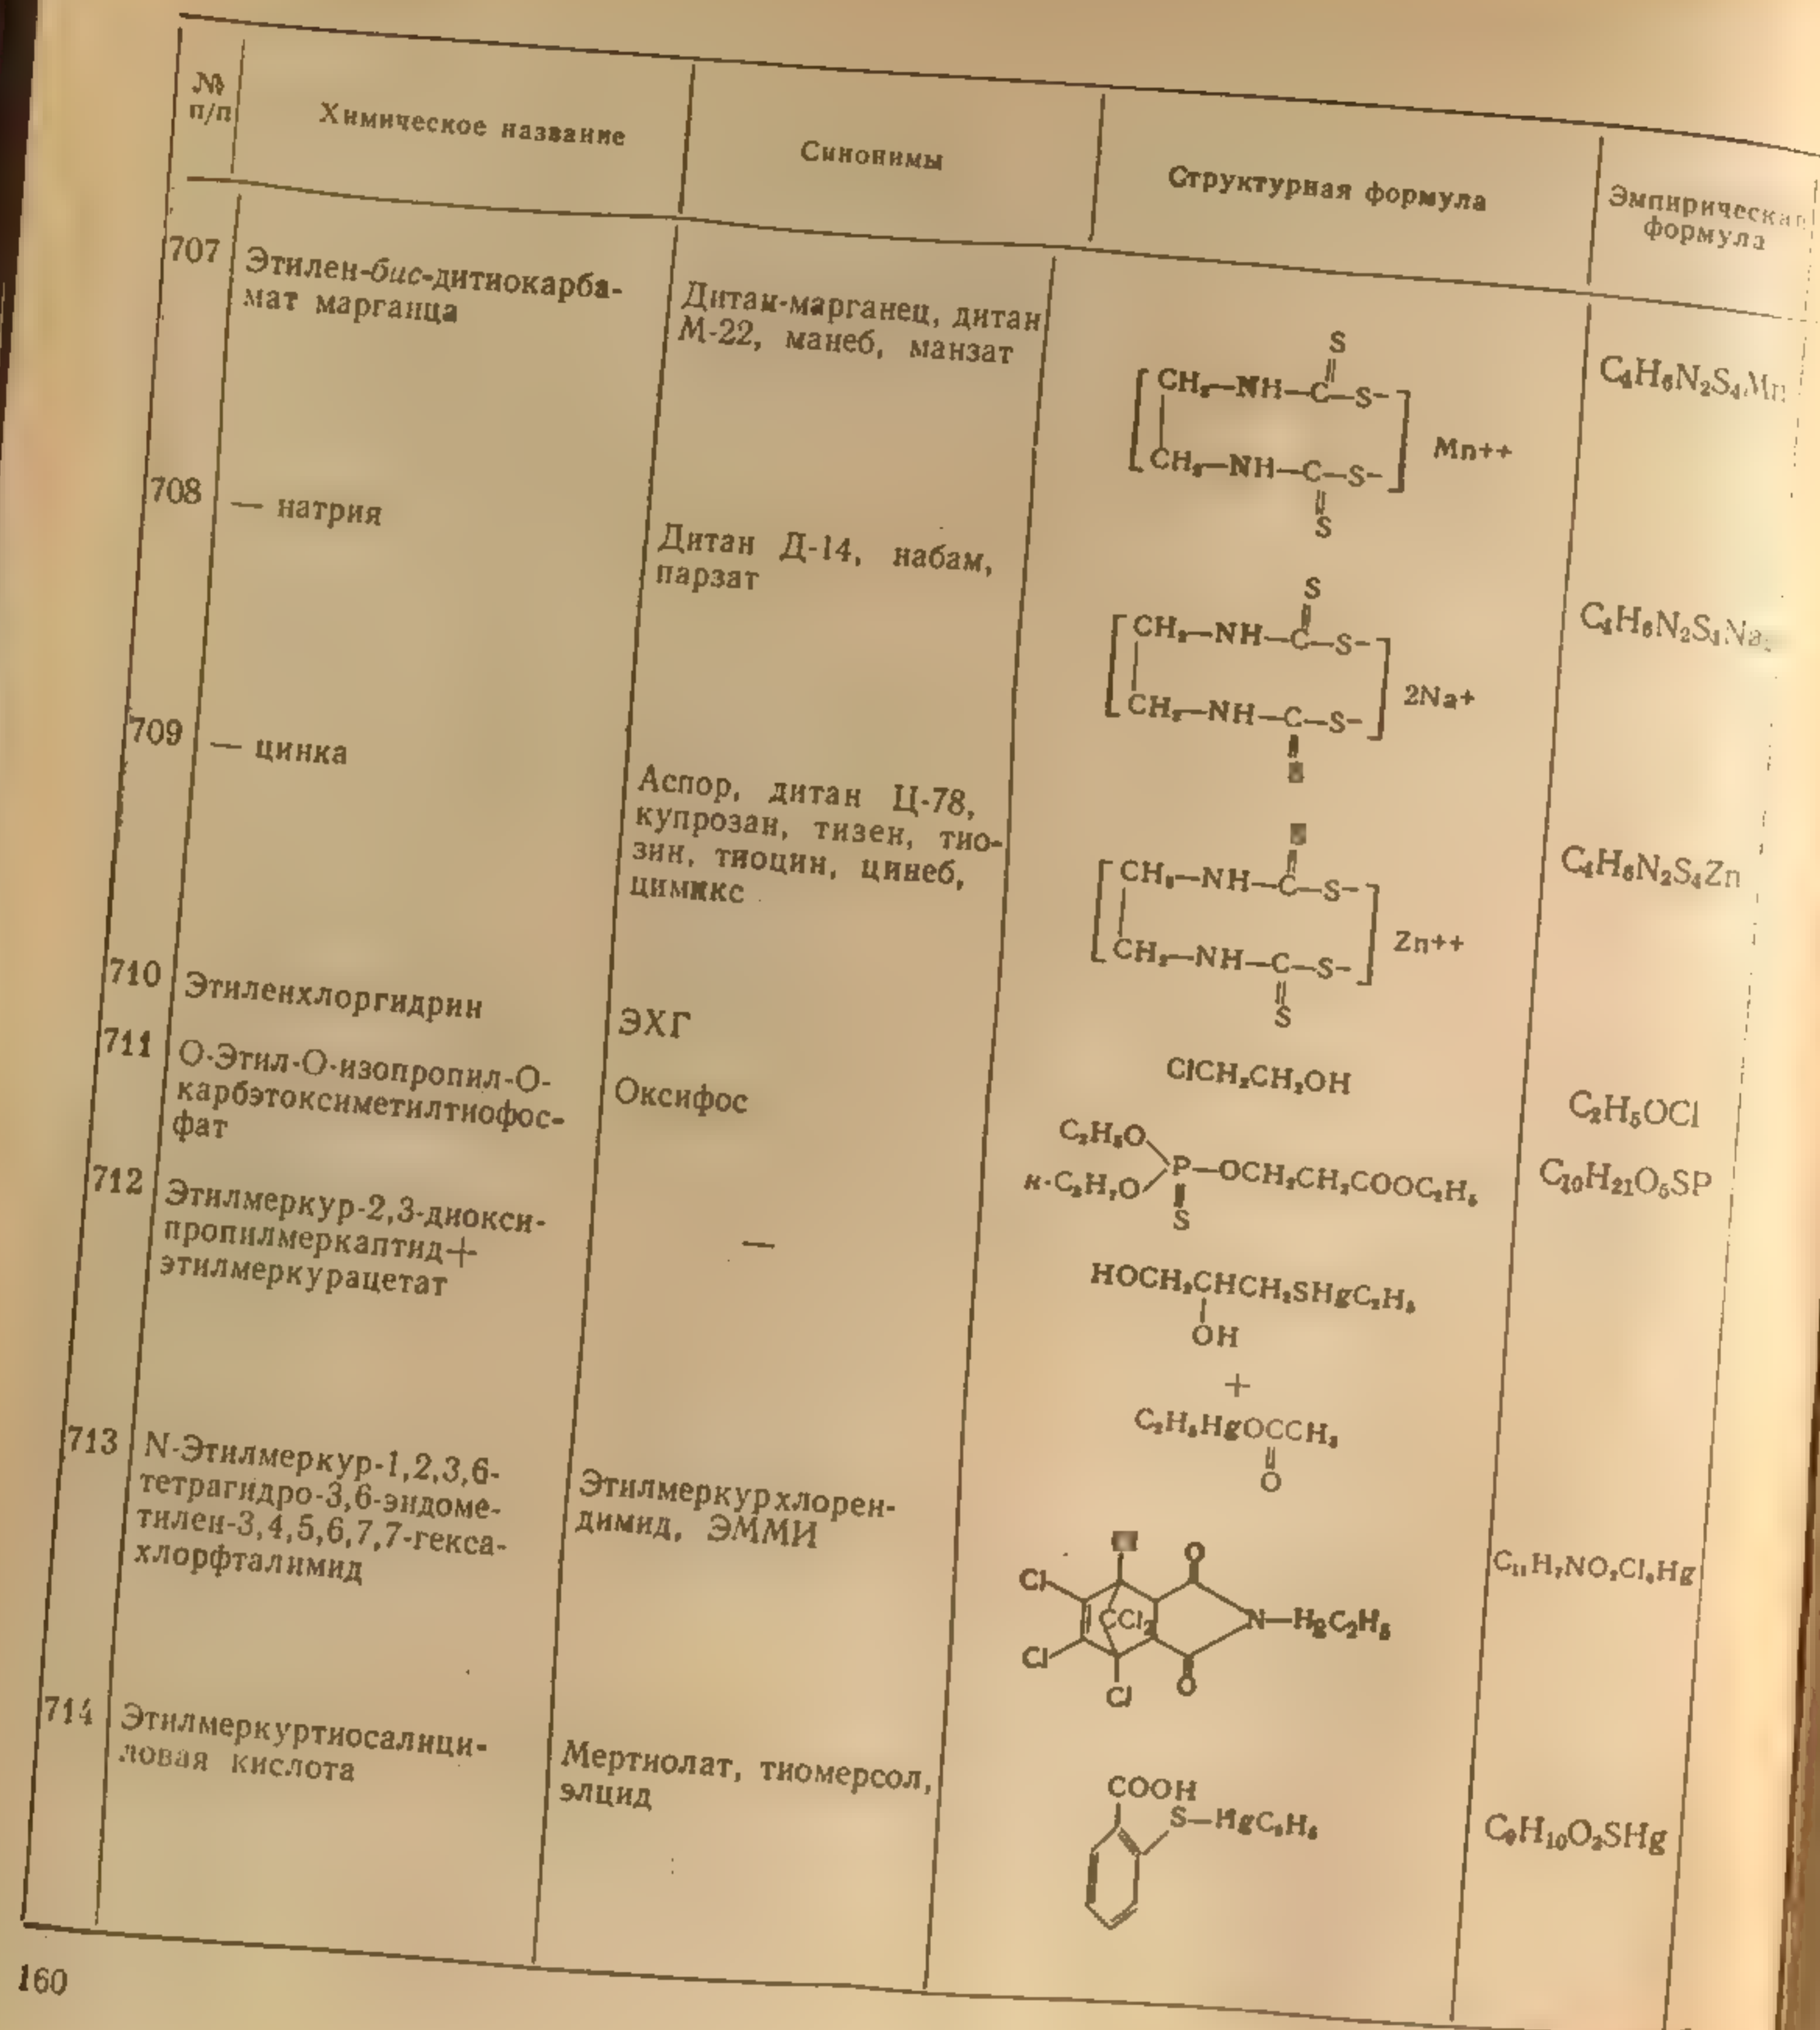 №
п/п
Химическое название
Синонимы
Структурная формула
Эмпирическая
формула
707
Этилен-бис-дитиокарба-
мат марганца
Дитан-марганец, дитан
М-22, манеб, манзат
S
CH₂—NH—C—S-
Mn++
CH₂—NH—C—S-
S
C₄H₆N₂S₄Mn
708
— натрия
Дитан Д-14, набам,
парзат
S
CH₂—NH—C—S-
2Na+
CH₂—NH—C—S-
C₄H₆N₂S₄Na₂
709
— цинка
Аспор, дитан Ц-78,
купрозан, тизен, тио-
зин, тиоцин, цинеб,
цимикс
CH₂—NH—C—S-
Zn++
CH₂—NH—C—S-
S
C₄H₆N₂S₄Zn
710
Этиленхлоргидрин
ЭХГ
ClCH₂CH₂OH
C₂H₅OCl
711
О-Этил-О-изопропил-О-
карбэтоксиметилтиофос-
фат
Оксифос
C₂H₅O
P—OCH₂CH₂COOC₂H₅
к-C₃H₇O
S
C₁₀H₂₁O₅SP
712
Этилмеркур-2,3-диокси-
пропилмеркаптид+
этилмеркурацетат
—
HOCH₂CHCH₂SHgC₂H₅
OH
+
C₂H₅HgOCCH₃
O
713
N-Этилмеркур-1,2,3,6-
тетрагидро-3,6-эндоме-
тилен-3,4,5,6,7,7-гекса-
хлорфталимид
Этилмеркурхлорен-
димид, ЭММИ
O
Cl
CCl₂
N—HgC₂H₅
Cl
O
Cl
C₁₁H₇NO₂Cl₆Hg
714
Этилмеркуртиосалици-
ловая кислота
Мертиолат, тиомерсол,
элцид
COOH
S—HgC₂H₅
C₉H₁₀O₂SHg
160